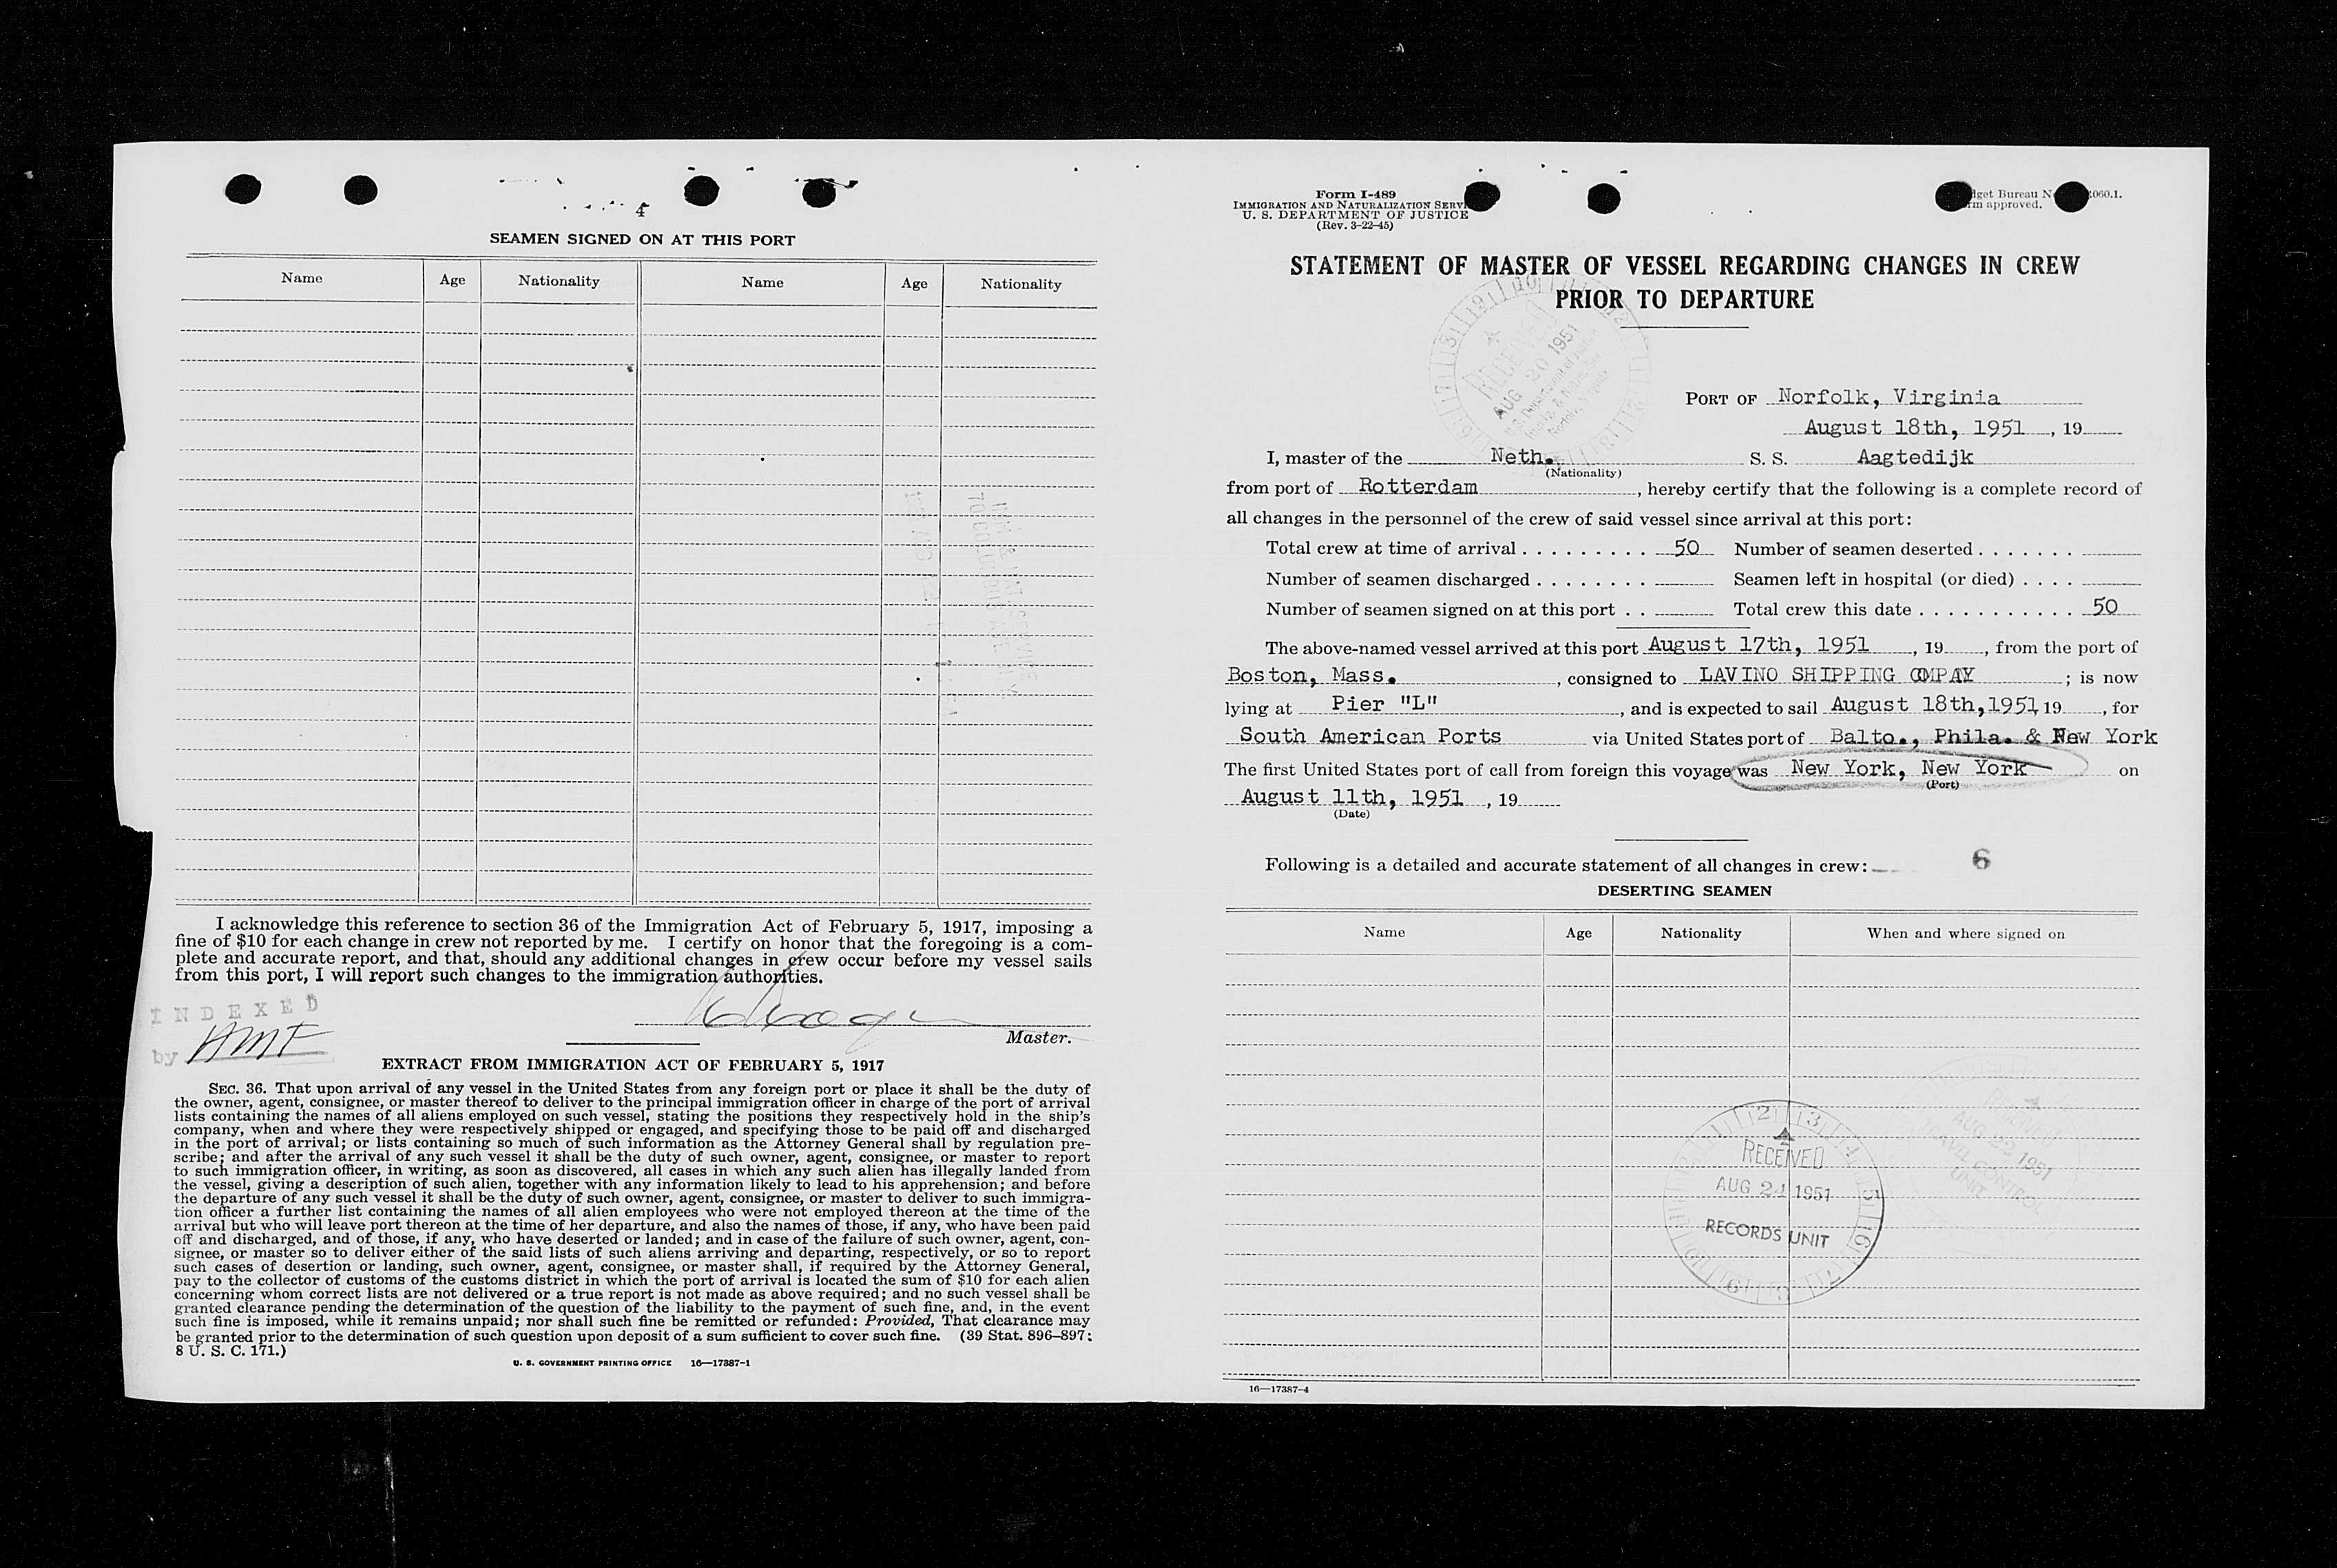 4
SEAMEN SIGNED ON AT THIS PORT
Name Age Nationality Name Age Nationality
I acknowledge this reference to section 36 of the Immigration Act of February 5, 1917, imposing a
fine of $10 for each change in crew not reported by me. I certify on honor that the foregoing is a com-
plete and accurate report, and that, should any additional changes in crew occur before my vessel sails
from this port, I will report such changes to the immigration authorities.
INDEXED
by AMF
Master.
EXTRACT FROM IMMIGRATION ACT OF FEBRUARY 5, 1917
SEC. 36. That upon arrival of any vessel in the United States from any foreign port or place it shall be the duty of
the owner, agent, consignee, or master thereof to deliver to the principal immigration officer in charge of the port of arrival
lists containing the names of all aliens employed on such vessel, stating the positions they respectively hold in the ship's
company, when and where they were respectively shipped or engaged, and specifying those to be paid off and discharged
in the port of arrival; or lists containing so much of such information as the Attorney General shall by regulation pre-
scribe; and after the arrival of any such vessel it shall be the duty of such owner, agent, consignee, or master to report
to such immigration officer, in writing, as soon as discovered, all cases in which any such alien has illegally landed from
the vessel, giving a description of such alien, together with any information likely to lead to his apprehension; and before
the departure of any such vessel it shall be the duty of such owner, agent, consignee, or master to deliver to such immigra-
tion officer a further list containing the names of all alien employees who were not employed thereon at the time of the
arrival but who will leave port thereon at the time of her departure, and also the names of those, if any, who have been paid
off and discharged, and of those, if any, who have deserted or landed; and in case of the failure of such owner, agent, con-
signee, or master so to deliver either of the said lists of such aliens arriving and departing, respectively, or so to report
such cases of desertion or landing, such owner, agent, consignee, or master shall, if required by the Attorney General,
pay to the collector of customs of the customs district in which the port of arrival is located the sum of $10 for each alien
concerning whom correct lists are not delivered or a true report is not made as above required; and no such vessel shall be
granted clearance pending the determination of the question of the liability to the payment of such fine, and, in the event
such fine is imposed, while it remains unpaid; nor shall such fine be remitted or refunded: Provided, That clearance may
be granted prior to the determination of such question upon deposit of a sum sufficient to cover such fine. (39 Stat. 896–897;
8 U. S. C. 171.)
U. S. GOVERNMENT PRINTING OFFICE 16—17387-1
Form I-489
IMMIGRATION AND NATURALIZATION SERVI
U. S. DEPARTMENT OF JUSTICE
(Rev. 3-22-45)
dget Bureau N 060.1.
rm approved.
STATEMENT OF MASTER OF VESSEL REGARDING CHANGES IN CREW
PRIOR TO DEPARTURE
RECEIVED
AUG 20 1951
PORT OF Norfolk, Virginia
August 18th, 1951 , 19
I, master of the Neth. S. S. Aagtedijk
(Nationality)
from port of Rotterdam , hereby certify that the following is a complete record of
all changes in the personnel of the crew of said vessel since arrival at this port:
Total crew at time of arrival . . . . . . . . . 50 Number of seamen deserted . . . . . . .
Number of seamen discharged . . . . . . . . Seamen left in hospital (or died) . . . .
Number of seamen signed on at this port . . Total crew this date . . . . . . . . . . . 50
The above-named vessel arrived at this port August 17th, 1951 , 19 , from the port of
Boston, Mass. , consigned to LAVINO SHIPPING COMPAY ; is now
lying at Pier "L" , and is expected to sail August 18th,1951, 19 , for
South American Ports via United States port of Balto., Phila. & New York
The first United States port of call from foreign this voyage was New York, New York on
(Port)
August 11th, 1951 , 19
(Date)
Following is a detailed and accurate statement of all changes in crew: 6
DESERTING SEAMEN
Name Age Nationality When and where signed on
RECEIVED
AUG 22 1951
TRAVEL CONTROL
UNIT
RECEIVED
AUG 24 1951
RECORDS UNIT
16—17387-4